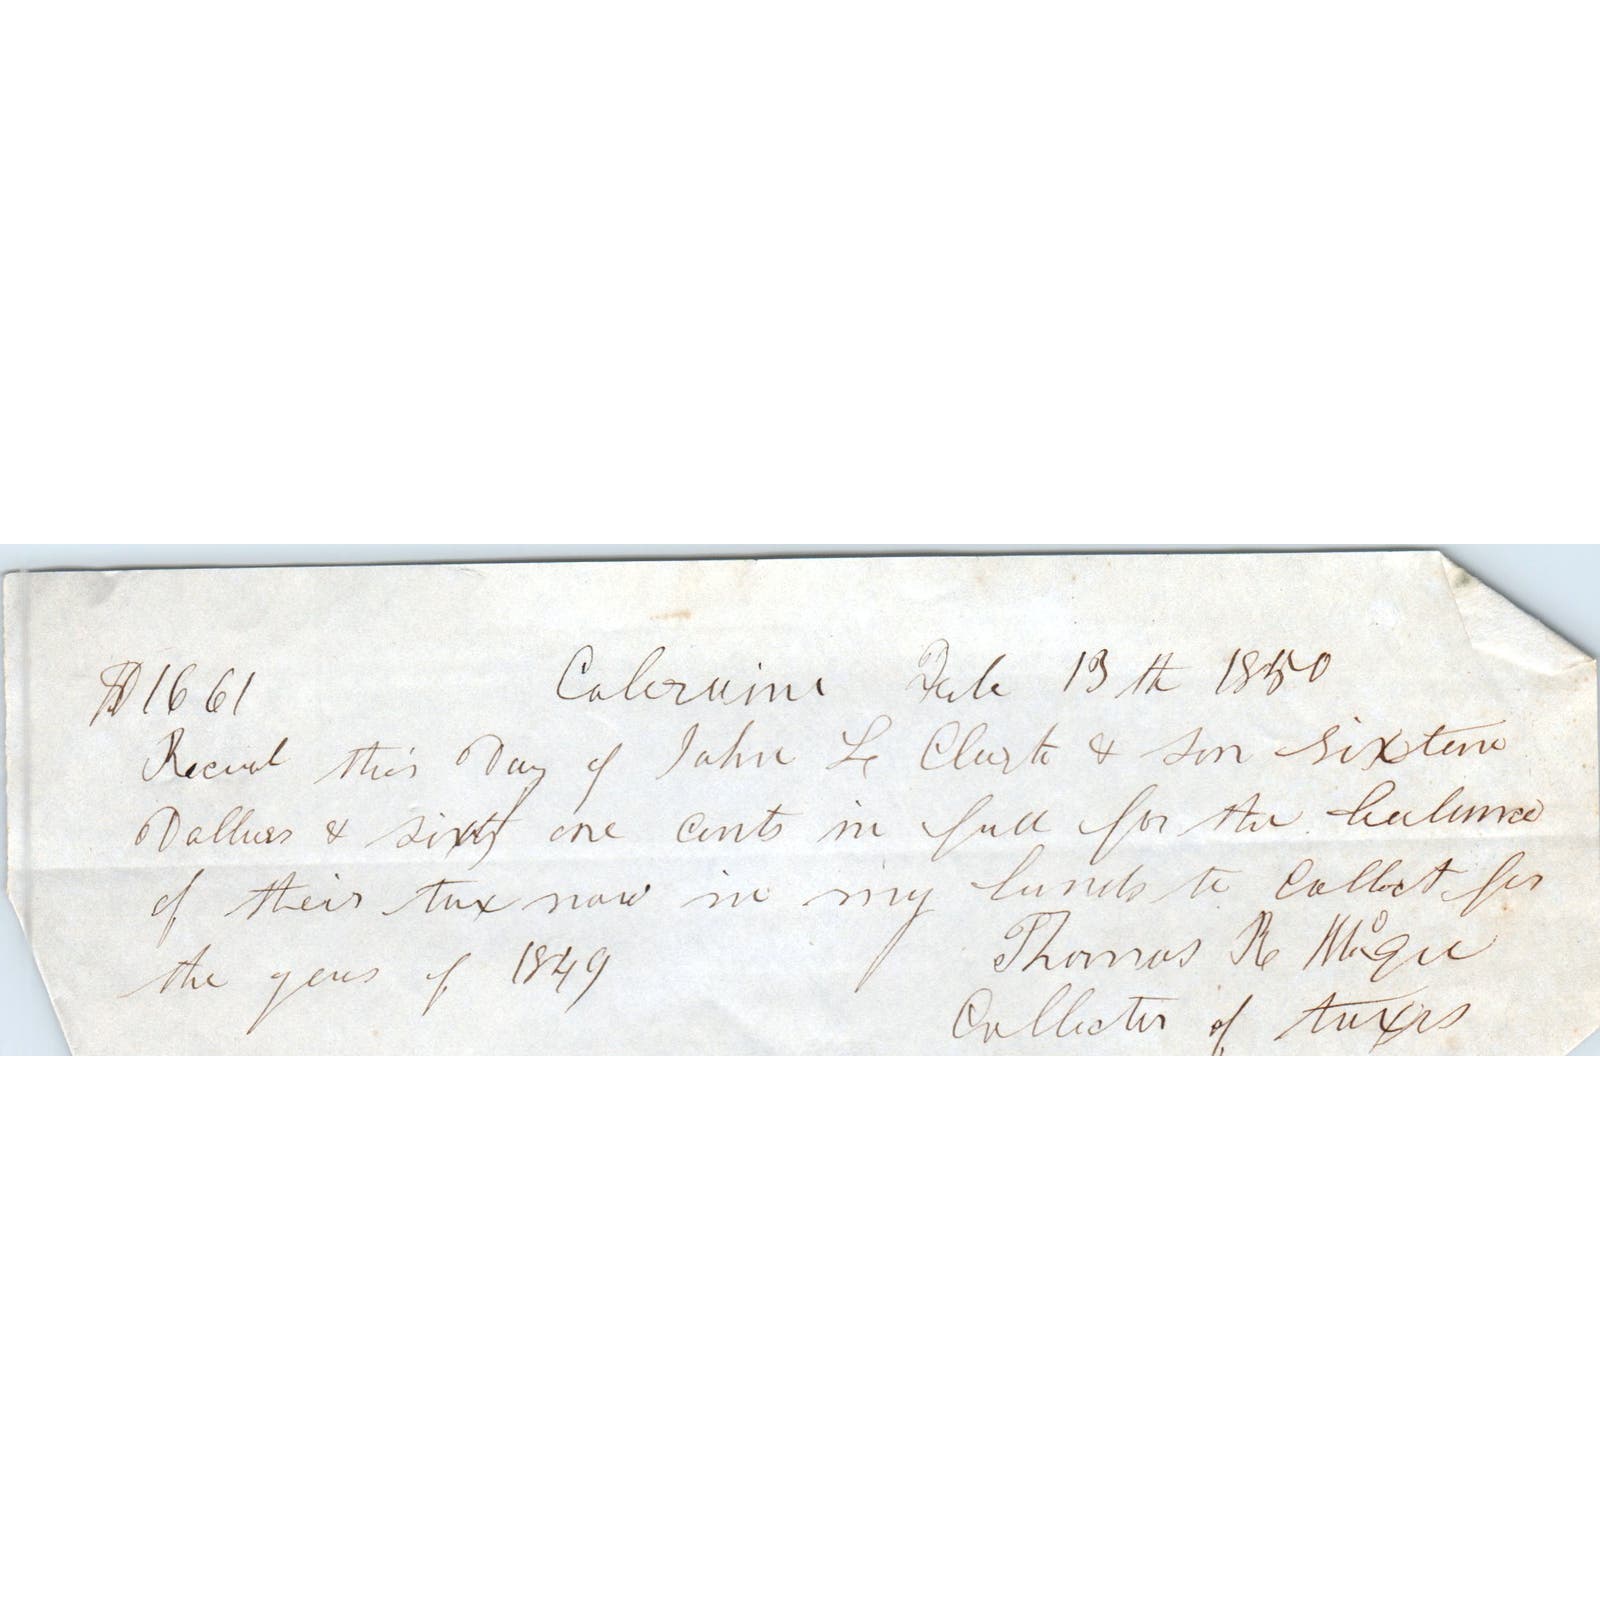 $16 61 Coleraine Feb 13th 1850
Received this Day of John L Clark & son sixtene
Dollars & sixty one cents in full for the balance
of their tax now in my hands to Collect for
the year of 1849
Thomas R McGee
Collector of taxes